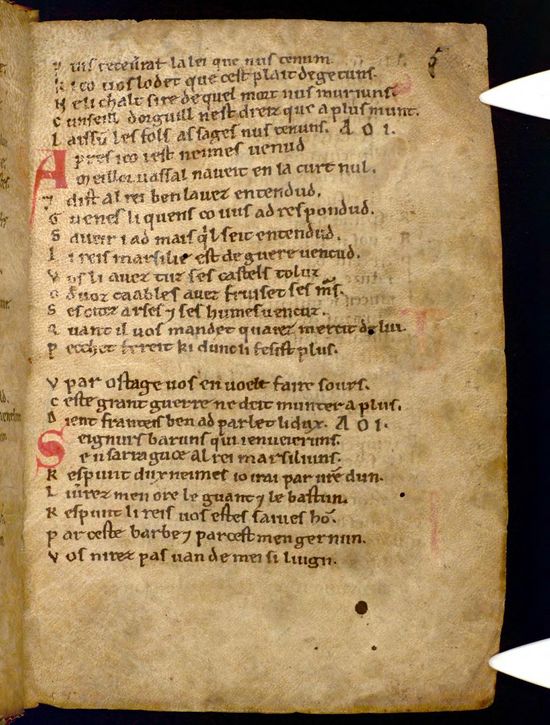 5
P uis recevrat la lei que nus tenum.
K i co vos lodet que cest plait degetuns.
N e li chalt sire de quel mort nus muriuns.
C unseill dorguill nest dreiz que a plus munt.
L aissun les fols as sages nus tenuns. A O I.
A pres ico i est neimes venud
M eillor vassal naveit en la curt nul.
⁊ dist al rei ben lavez entendud.
G uenes li quens co vus ad respondud.
S aveir i ad mais ql seit entendud.
L i reis marsilie est de guere vencud.
V os li avez tuz ses castels toluz
O d voz caables avez fruiset ses m̃s.
S es citez arses ⁊ ses humes vencuz.
Q uant il vos mandet quaiez mercit de lui.
P ecchet fereit ki dunc li fesist plus.
V par ostage vos en voelt faire sours.
C este grant guerre ne deit munter a plus.
D ient franceis ben ad parlet li dux. A O I.
S eignurs baruns qui i enveieruns.
e n sarraguce al rei marsiliuns.
R espunt dux neimes io irai par vr̃e dun.
L ivrez men ore le guant ⁊ le bastun.
R espunt li reis vos estes saives hõ.
P ar ceste barbe ⁊ par cest men gernun.
V os nirez pas uan de mei si luign.